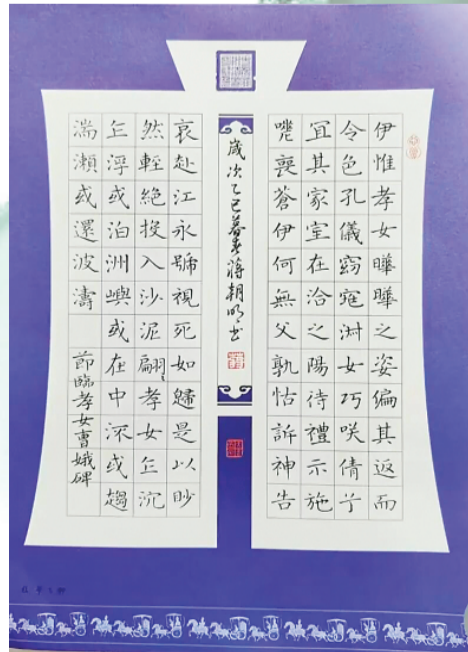 伊惟孝女曄曄之姿偏其返而
令色孔儀窈窕淑女巧咲倩兮
宜其家室在洽之陽待禮示施
嗟喪蒼伊何無父孰怙訴神告
歲次乙巳暮春蔣朝明書
哀赴江永號視死如歸是以眇
然輕絕投入沙泥翩〻孝女乍沉
乍浮或泊洲嶼或在中流或趨
湍瀨或還波濤
節臨孝女曹娥碑